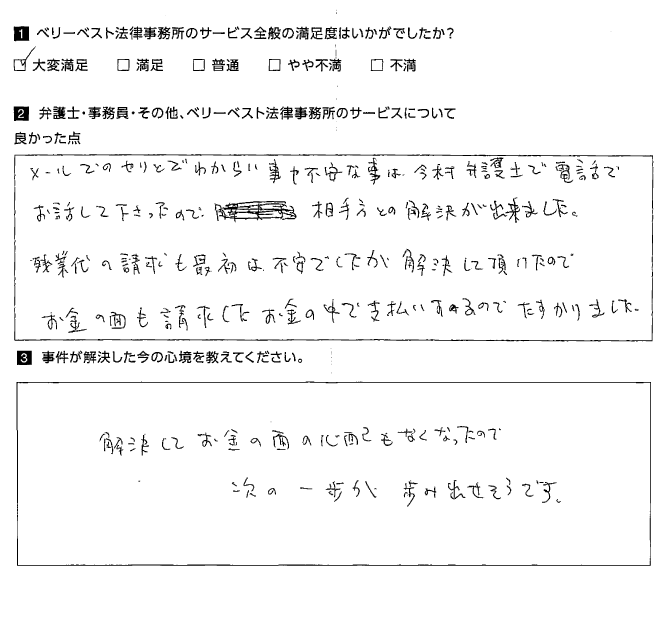 1 ベリーベスト法律事務所のサービス全般の満足度はいかがでしたか？
☑ 大変満足 □ 満足 □ 普通 □ やや不満 □ 不満
2 弁護士・事務員・その他、ベリーベスト法律事務所のサービスについて
良かった点
メールでのやりとりでわからない事や不安な事は 今村弁護士で電話で
お話して下さったので、 相手方との解決が出来ました。
残業代の請求も最初は不安でしたが 解決して頂けたので
お金の面も請求したお金の中で支払いするのでたすかりました。
3 事件が解決した今の心境を教えてください。
解決して お金の面の心配もなくなったので
次の一歩が 歩み出せそうです。